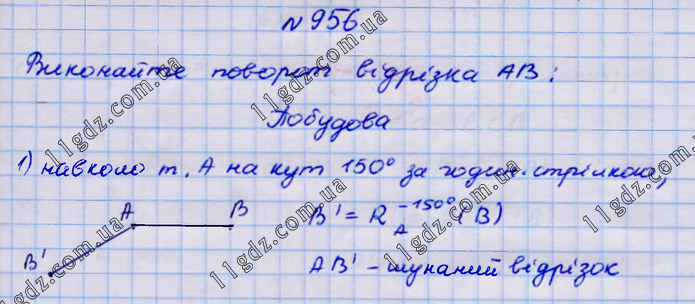 №956.
Виконайте поворот відрізка AB:
Побудова
1) навколо т. A на кут 150° за годин. стрілкою,
A B B' = R_A^{-150°}(B)
B' AB' - шуканий відрізок
11gdz.com.ua
11gdz.com.ua
11gdz.com.ua
11gdz.com.ua
11gdz.com.ua
11gdz.com.ua
11gdz.com.ua
11gdz.com.ua